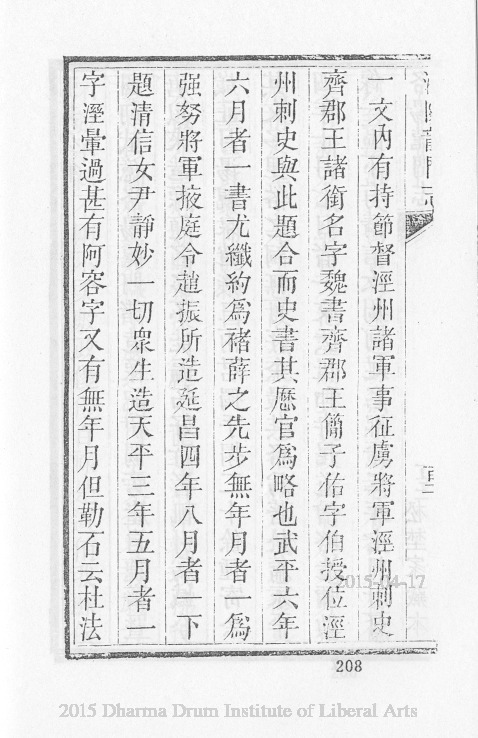 一文內有持節督涇州諸軍事征虜將軍涇州刺史
齊郡王諸銜名字魏書齊郡王簡子佑字伯授位涇
州刺史與此題合而史書其歷官爲略也武平六年
六月者一書尤纖約爲褚薛之先步無年月者一爲
强努將軍掖庭令趙振所造延昌四年八月者一下
題清信女尹靜妙一切衆生造天平三年五月者一
字溼暈過甚有阿容字又有無年月但勒石云杜法
2015-04-17
208
2015 Dharma Drum Institute of Liberal Arts